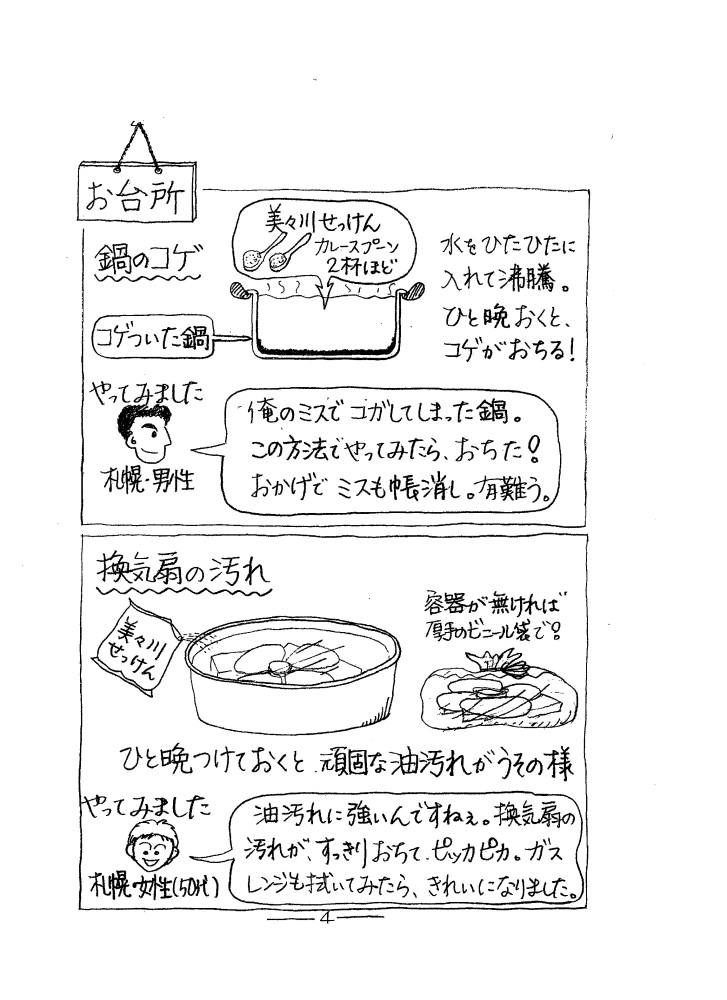 お台所
鍋のコゲ
美々川せっけん
カレースプーン
2杯ほど
水をひたひたに
入れて沸騰。
ひと晩おくと、
コゲがおちる!
コゲついた鍋
やってみました
札幌・男性
俺のミスでコガしてしまった鍋。
この方法でやってみたら、おちた!
おかげでミスも帳消し。有難う。
換気扇の汚れ
美々川
せっけん
容器が無ければ
厚手のビニール袋で!
ひと晩つけておくと、頑固な油汚れがうその様
やってみました
札幌・女性(50代)
油汚れに強いんですねぇ。換気扇の
汚れが、すっきりおちて、ピッカピカ。ガス
レンジも拭いてみたら、きれいになりました。
4